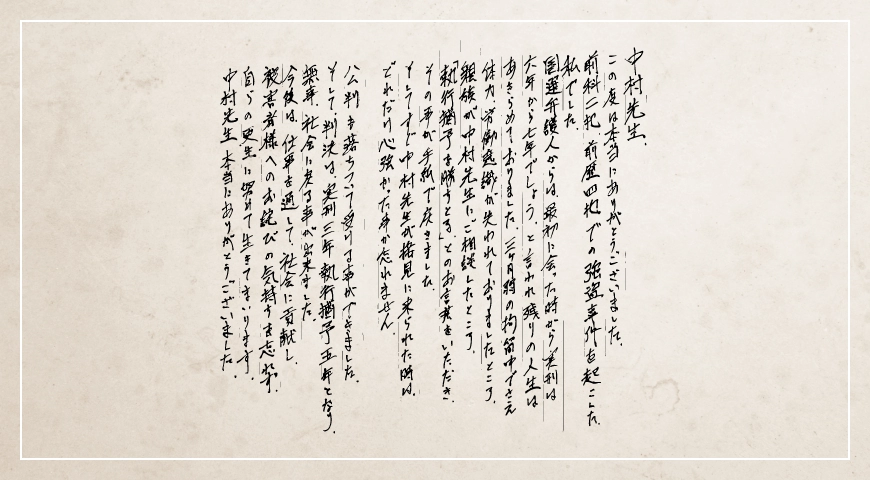 中村先生、
この度は本当にありがとうございました。
前科二犯、前歴四犯での強盗事件を起こした
私でした。
国選弁護人からは、最初に会った時から実刑は
六年から七年でしょう、と言われ残りの人生は
あきらめておりました。三ヶ月弱の拘留中でさえ
体力、労働意識が失われておりましたところ、
親族が中村先生にご相談したところ、
「執行猶予を勝ちとる」とのお言葉をいただき、
その事が手紙で来ました。
そしてすぐ中村先生が接見に来られた時は、
どれだけ心強かった事か忘れません。
公判も落ちついて受ける事ができました。
そして判決は、実刑三年執行猶予五年となり、
無事、社会に戻る事が出来ました。
今後は、仕事を通して、社会に貢献し、
被害者様へのお詫びの気持ちを忘れず、
自らの更生に努めて生きてまいります。
中村先生、本当にありがとうございました。